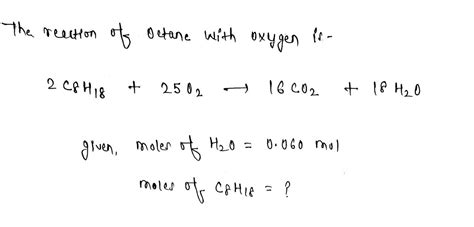 The reaction of Octane with oxygen is -
2 C8H18 + 25 O2 → 16 CO2 + 18 H2O
given, moles of H2O = 0.060 mol
moles of C8H18 = ?